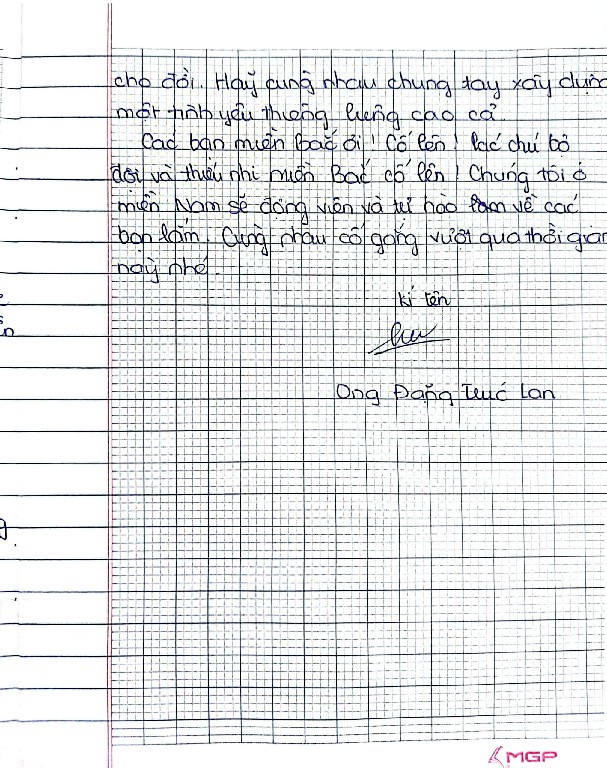 cho đời. Hãy cùng nhau chung tay xây dựng
một tình yêu thương lương cao cả.
Các bạn miền Bắc ơi! Cố lên! Các chú bộ
đội và thiếu nhi miền Bắc cố lên! Chúng tôi ở
miền Nam sẽ động viên và tự hào lắm về các
bạn lắm. Cùng nhau cố gắng vượt qua thời gian
này nhé.
kí tên
Ong Đặng Trúc Lan
MGP